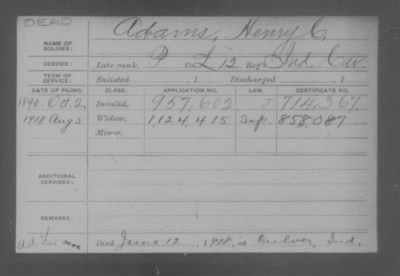 DEAD
Adams, Henry C.
NAME OF SOLDIER:
SERVICE: Late rank, P Co. L, 12 Reg't Ind. Cav.
TERM OF SERVICE: Enlisted , 1 Discharged , 1
DATE OF FILING. CLASS. APPLICATION NO. LAW. CERTIFICATE NO.
1890. Oct. 2, Invalid, 957,602 J 714,367.
1918 Aug 5 Widow, 1,124,415 858,087
Minor,
ADDITIONAL SERVICES:
REMARKS:
Died June 12, 1918, at Culver, Ind.